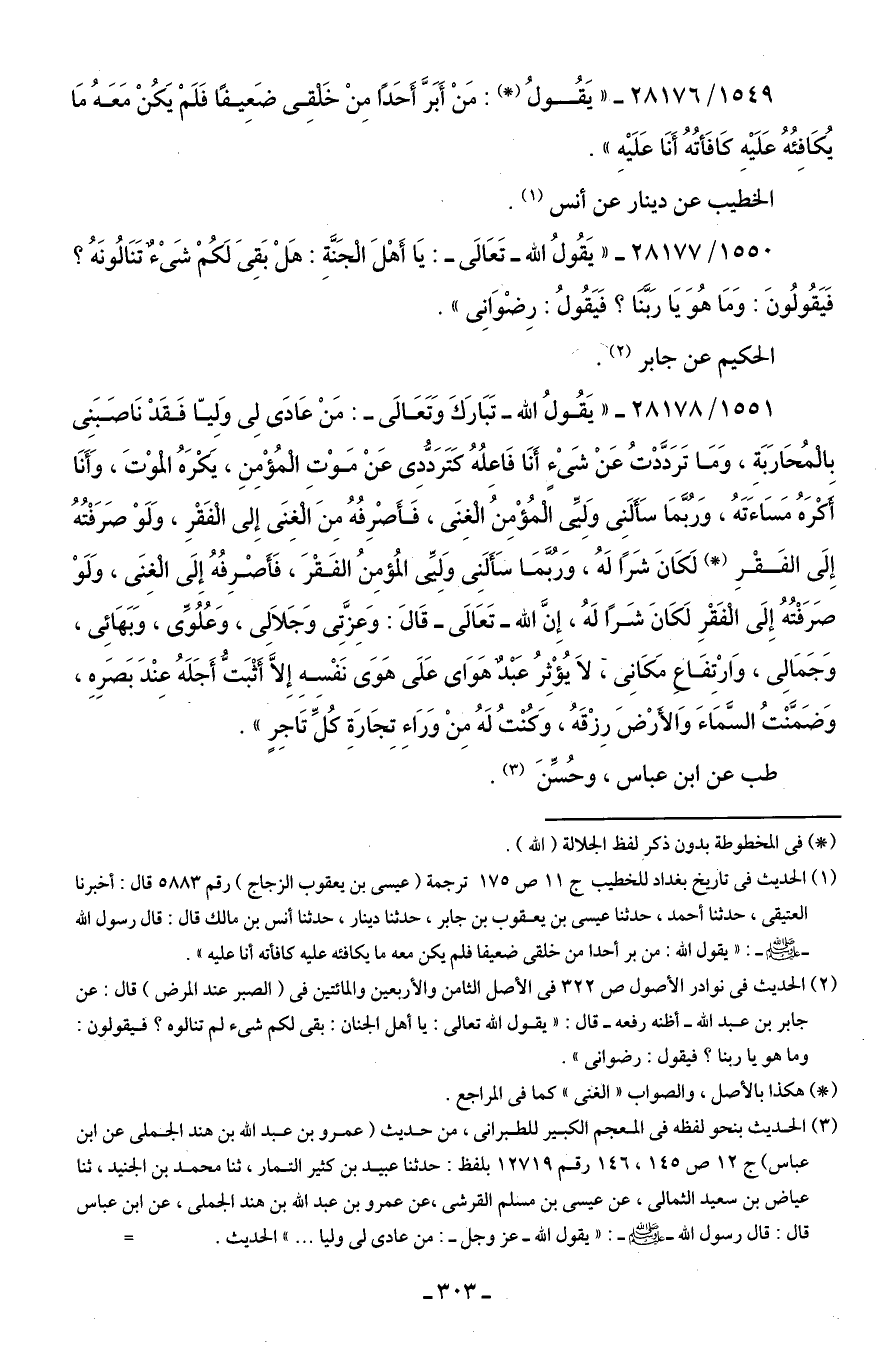 ١٥٤٩/ ٢٨١٧٦ ـ « يَقُـــولُ (*) : مَنْ أَبَرَّ أَحَدًا مِنْ خَلْقِى ضَعِيفًا فَلَمْ يَكُنْ مَعَهُ مَا
يُكَافِئُهُ عَلَيْهِ كَافَأتُهُ أَنَا عَلَيْهِ » .
الخطيب عن دينار عن أنس (١) .
١٥٥٠/ ٢٨١٧٧ ـ « يَقُولُ الله ـ تَعَالَى ـ : يَا أَهْلَ الْجَنَّةِ : هَلْ بَقِىَ لَكُمْ شَىْءٌ تَنَالُونَهُ ؟
فَيَقُولُونَ : وَمَا هُوَ يَا رَبَّنَا ؟ فَيَقُولُ : رِضْوَانِى » .
الحكيم عن جابر (٢) .
١٥٥١/ ٢٨١٧٨ ـ « يَقُـولُ الله ـ تَبَارَكَ وَتَعَـالَى ـ : مَنْ عَادَى لِى وَلِيـا فَـقَدْ نَاصَـبَنِى
بِالْمُحَارَبَةِ ، وَمَـا تَرَدَّدْتُ عَنْ شَىْءٍ أَنَا فَاعِلُهُ كَتَرَدُّدِى عَنْ مَـوْتِ الْمُؤْمِنِ ، يَكْرَهُ الْمَوْتَ ، وَأَنَا
أَكْرَهُ مَسَاءَتَهُ ، وَرُبَّمَا سَأَلَنِى وَلِيِّى الْمُؤْمِنُ الْغِنَى ، فَـأَصْرِفُهُ مِنَ الْغِنَى إِلى الْفَقْرِ ، وَلَوْ صَرَفْتُهُ
إِلَى الفَـــقْـرِ (*) لَكَانَ شَرًا لَهُ ، وَرُبَّمَـا سَأَلَنِى وَلِيِّى الْمُؤمِنُ الْفَـقْرَ ، فَأَصْـرِفُهُ إِلَى الْغِنَى ، وَلَوْ
صَرَفْتُهُ إِلَى الْفَقْرِ لَكَانَ شَـرًا لَهُ ، إِنَّ الله ـ تَعَالَى ـ قَالَ : وَعِزَّتِى وَجَلَالِى ، وَعُلُوِّى ، وَبَهَائِى ،
وَجَمَالِى ، وَارْتِفَـاعِ مَكَانِى ، لاَ يُؤْثِرُ عَبْدٌ هَوَاى عَلَى هَوَى نَفْسِـهِ إِلاَّ أَثْبَتُّ أَجَلَهُ عِنْدَ بَصَرِهِ ،
وَضَمَّنْتُ السَّمَاءَ وَالأَرْضَ رِزْقَهُ ، وَكُنْتُ لَهُ مِنْ وَرَاءِ تِجَارَةِ كُلِّ تَاجِرٍ » .
طب عن ابن عباس ، وحُسِّنَ (٣) .
(*) فى المخطوطة بدون ذكر لفظ الجلالة ( الله ) .
(١) الحديث فى تاريخ بغداد للخطيب ج ١١ ص ١٧٥ ترجمة ( عيسى بن يعقوب الزجاج ) رقم ٥٨٨٣ قال : أخبرنا
العتيقى ، حدثنا أحمد ، حدثنا عيسى بن يعـقوب بن جابر ، حدثنا دينار ، حدثنا أنس بن مالك قال : قال رسول الله
ـ ﷺ ـ : « يقول الله : من بر أحدا من خلقى ضعيفا فلم يكن معه ما يكافئه عليه كافأته أنا عليه » .
(٢) الحديث فى نوادر الأصول ص ٣٢٢ فى الأصل الثامن والأربعين والمائتين فى ( الصبر عند المرض ) قال : عن
جابر بن عـبد الله ـ أظنه رفعه ـ قال : « يقـول الله تعالى : يا أهل الجنان : بقى لكم شىء لم تنالوه ؟ فـيقولون :
وما هو يا ربنا ؟ فيقول : رضوانى » .
(*) هكذا بالأصل ، والصواب « الغنى » كما فى المراجع .
(٣) الحـديث بنحو لفظه فى المـعجم الكبير للطـبرانى ، من حـديث ( عمـرو بن عـبد الله بن هند الجـملى عن ابن
عباس) ج ١٢ ص ١٤٥ ، ١٤٦ رقـم ١٢٧١٩ بلفظ : حدثنا عبيد بن كثير التـمار ، ثنا محمـد بن الجنيد ، ثنا
عياض بن سعيد الثمالى ، عن عيسى بن مسلم القرشى ،عن عمرو بن عبد الله بن هند الجملى ، عن ابن عباس
قال : قال رسول الله ـ ﷺ ـ : « يقول الله ـ عز وجل ـ : من عادى لى وليا ... » الحديث . =
ـ ٣٠٣ ـ